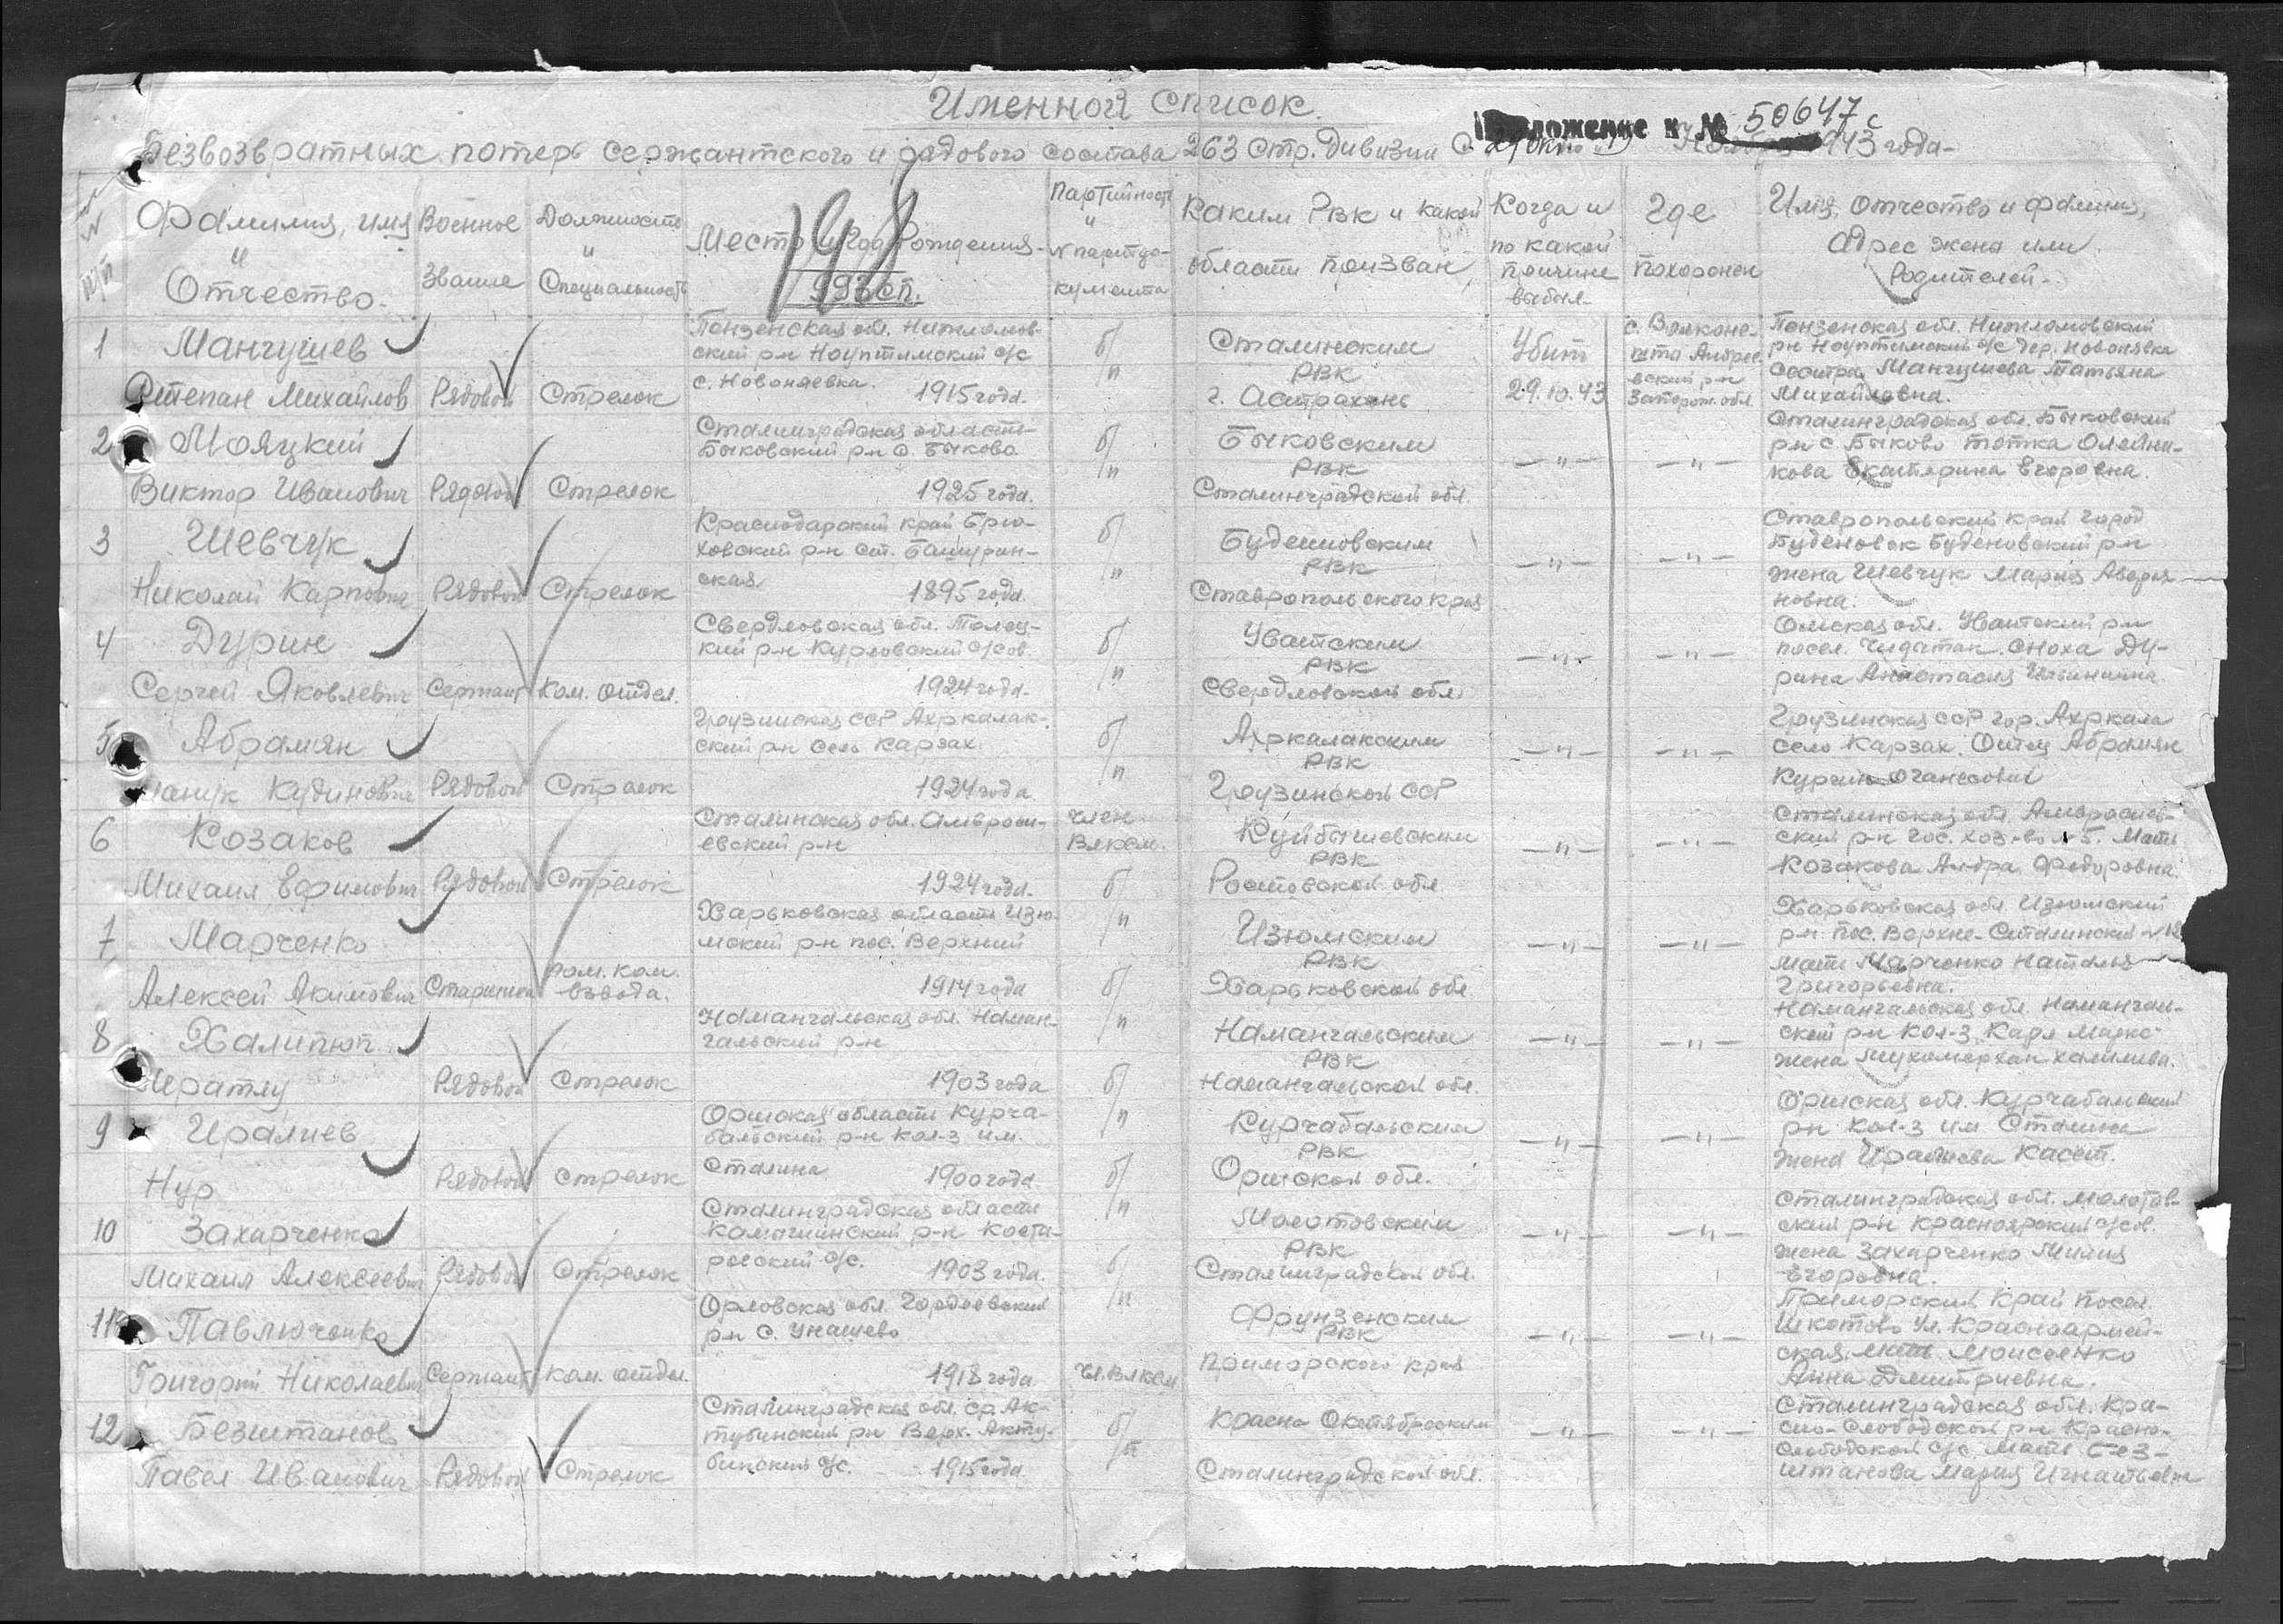 Именной список.
ложение к № 50647с
Безвозвратных потерь сержантского и рядового состава 263 стр. дивизии с 943 года-
198
№ п/п
Фамилия, имя и Отчество.
Военное звание
Должность и Специальность
Место и год рождения-
993 сп.
Партийность и № партдокумента
Каким РВК и какой области призван
Когда и по какой причине выбыл-
Где похоронен
Имя, отчество и фамилия, адрес жены или родителей-
1
Мангушев
Степан Михайлов
Рядовой
Стрелок
Пензенская обл. Нижломов-
ский р-н с/с
с. Новоняевка. 1915 года.
б/п
Сталинским
РВК
г. Астрахань
Убит
29.10.43
Пензенская обл. Нижломовский
р-н с/с дер. Новонявка
сестра Мангушева Татьяна
Михайловна.
2
Мояцкий
Виктор Иванович
Рядовой
Стрелок
Сталинградская область
Быковский р-н с. Быково
1925 года.
б/п
Быковским
РВК
Сталинградской обл.
—"—
—"—
Сталинградская обл. Быковский
р-н с. Быково тетка Олейни-
кова Екатерина Егоровна.
3
Шевчук
Николай Карпович
Рядовой
Стрелок
Краснодарский край Брю-
ховский р-н ст.
ская 1895 года.
б/п
Буденновским
РВК
Ставропольского края
—"—
—"—
Ставропольский край город
Буденовск Буденовский р-н
жена Шевчук Мария Аверья-
новна.
4
Дурин
Сергей Яковлевич
Сержант
Ком. отдел.
Свердловская обл.
кий р-н Курловский с/сов.
1924 года.
б/п
Уватским
РВК
Свердловской обл.
—"—
—"—
Омская обл. Уватский р-н
посел. сноха Ду-
рина Анастасия Ильинична.
5
Абрамян
Кудинович
Рядовой
Стрелок
Грузинская ССР Ахркалак-
ский р-н село Карзах.
1924 года
б/п
Ахркалакским
РВК
Грузинской ССР
—"—
—"—
Грузинская ССР гор. Ахркала
село Карзах. Отец Абрамян
6
Козаков
Михаил Ефимович
Рядовой
Стрелок
Сталинская обл. Амвроси-
евский р-н
1924 года.
член
ВЛКСМ.
Куйбышевским
РВК
Ростовской обл.
—"—
—"—
Сталинская обл. Амвросиев-
ский р-н гос. хоз-во № 5. Мать
Козакова Федоровна.
7
Марченко
Алексей Акимович
Старшина
пом. ком.
взвода.
Харьковская область Изю-
мский р-н пос. Верхний
1914 года
б/п
Изюмским
РВК
Харьковской обл.
—"—
—"—
Харьковская обл. Изюмский
р-н пос. Верхне-Сталинский
мать Марченко Наталья
Григорьевна.
8
Халипюп
Иратлу
Рядовой
Стрелок
Намангальская обл. Наман-
гальский р-н
1903 года
б/п
Намангальским
РВК
Намангальской обл.
—"—
—"—
Намангальская обл. Намангаль-
ский р-н кол-з Карл Маркс
жена
9
Иралиев
Нур
Рядовой
Стрелок
Ошская область Курча-
бальский р-н кол-з им.
Сталина 1900 года
б/п
Курчабальским
РВК
Ошской обл.
—"—
—"—
Ошская обл. Курчабальский
р-н кол-з им Сталина
жена Иралиева Касет.
10
Захарченко
Михаил Алексеевич
Рядовой
Стрелок
Сталинградская область
Камышинский р-н Коста-
ревский с/с. 1903 года.
б/п
Молотовским
РВК
Сталинградской обл.
—"—
—"—
Сталинградская обл. Молотов-
ский р-н Красноярский с/сов.
жена Захарченко
Егоровна.
11
Павлюченко
Григорий Николаевич
Сержант
Ком. отдел.
Орловская обл. Гордеевский
р-н с. Унашево
1918 года
б/п
чл. ВЛКСМ
Фрунзенским
РВК
Приморского края
—"—
—"—
Приморский край посел.
Шкотово ул. Красноармей-
ская. Мать Моисеенко
Анна Дмитриевна.
12
Безштанов
Павел Иванович
Рядовой
Стрелок
Сталинградская обл. Ср. Ак-
тубинский р-н Верх. Ахту-
бинский с/с. 1915 года
б/п
Красно Октябрьским
Сталинградской обл.
—"—
—"—
Сталинградская обл. Кра-
сно-Слободской р-н Красно-
слободской с/с. Мать Без-
штанова Мария Игнатьевна